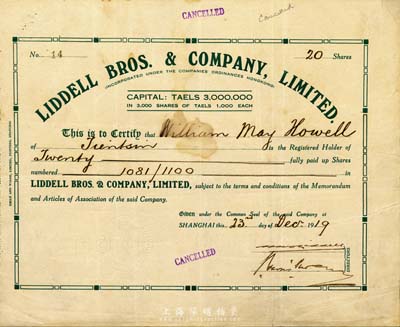 CANCELLED
Cancelled
No. 14
20 Shares
LIDDELL BROS. & COMPANY, LIMITED.
INCORPORATED UNDER THE COMPANIES ORDINANCES HONGKONG.
CAPITAL: TAELS 3,000,000
IN 3,000 SHARES OF TAELS 1,000 EACH
This is to Certify that William May Howell
of Tientsin is the Registered Holder of
Twenty fully paid up Shares
numbered 1081/1100 in
LIDDELL BROS. & COMPANY, LIMITED, subject to the terms and conditions of the Memorandum
and Articles of Association of the said Company.
Given under the Common Seal of the said Company at
SHANGHAI this 23rd day of Dec. 1919
CANCELLED
DIRECTORS.
上海阳明拍卖